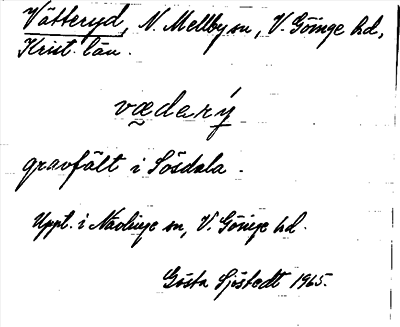 Vätteryd, N. Mellby sn, V. Göinge hd,
Krist. län.
væ̰darý̰
gravfält i Sösdala.
Uppt. i Nävlinge sn, V. Göinge hd.
Gösta Sjöstedt 1965.